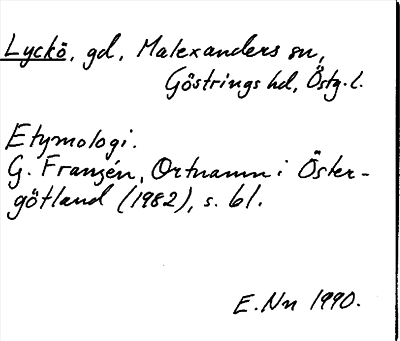 Lyckö, gd, Malexanders sn,
Göstrings hd, Östg. l.
Etymologi.
G. Franzén, Ortnamn i Öster-
götland (1982), s. 61.
E. Nn 1990.